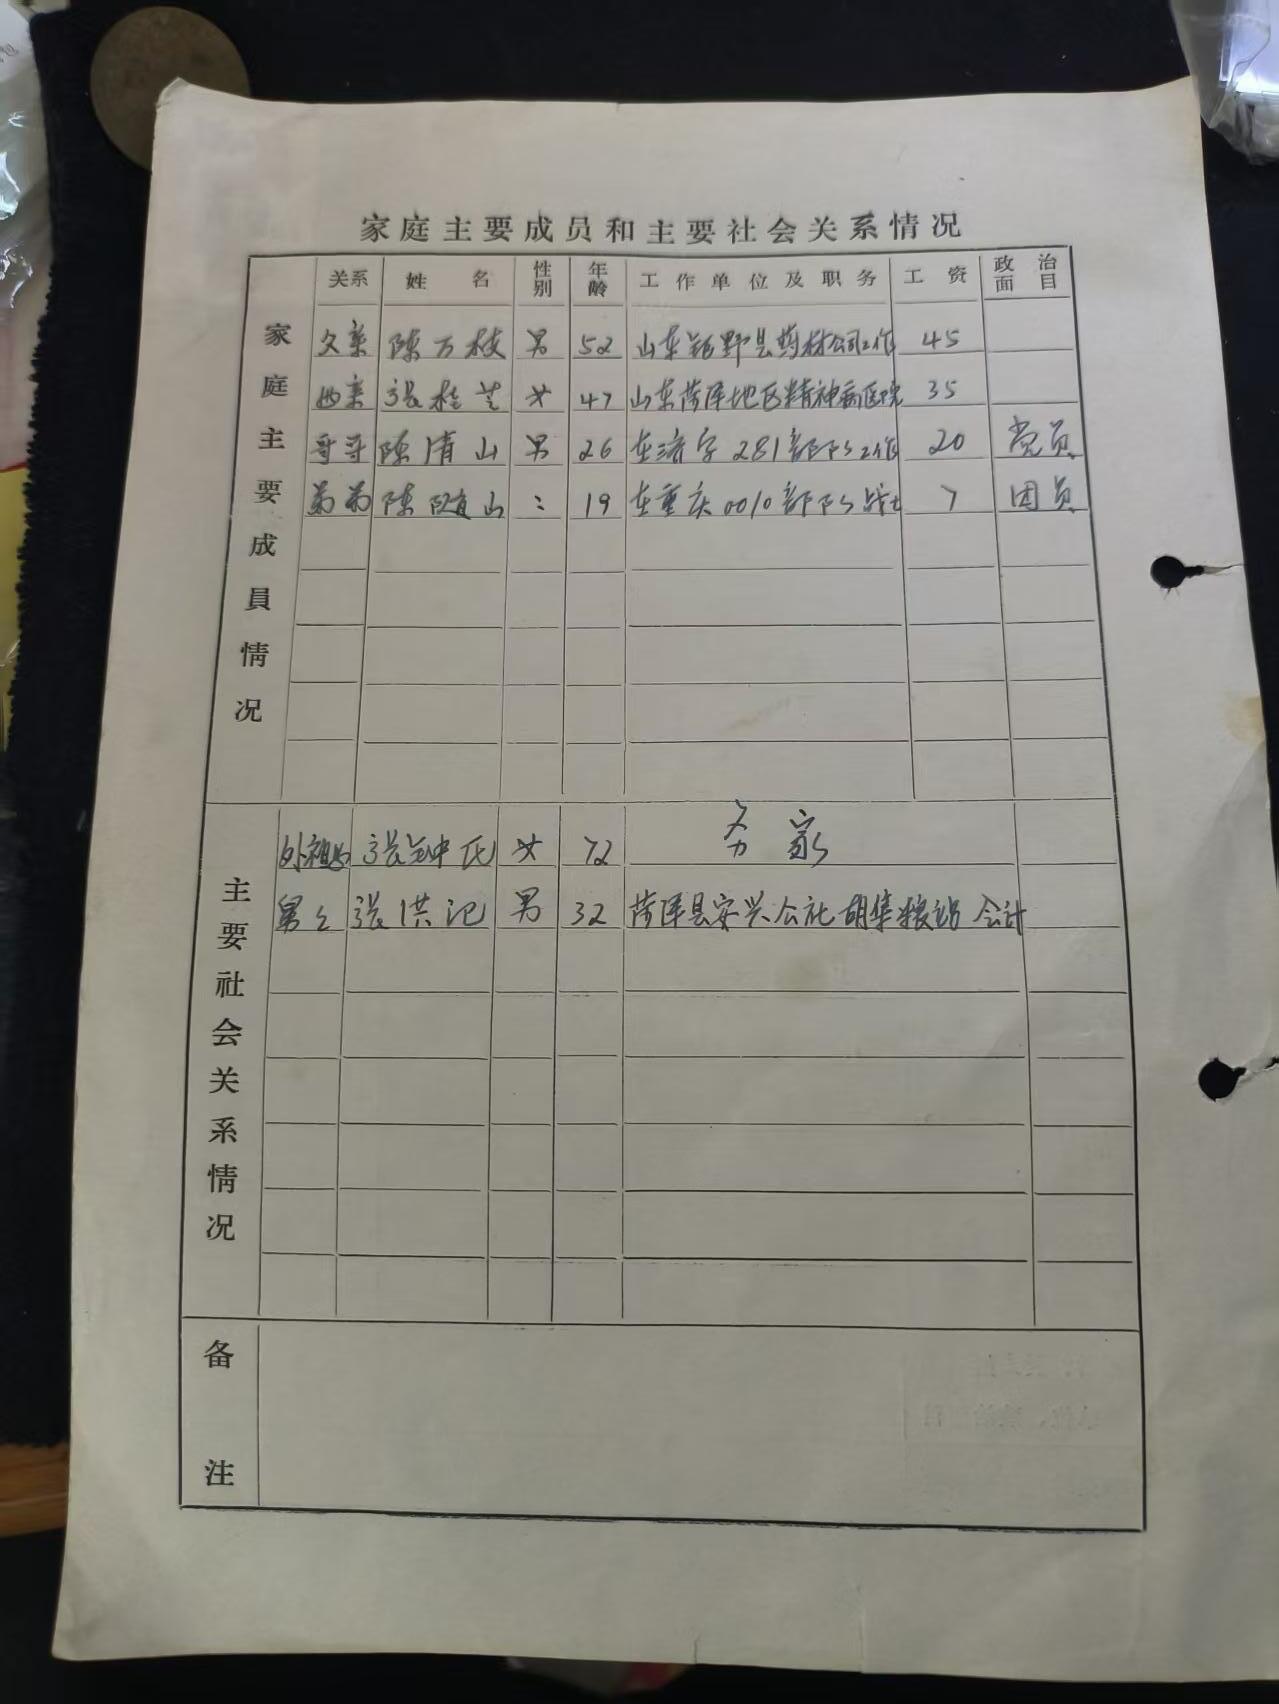 家庭主要成员和主要社会关系情况
关系 姓名 性别 年龄 工作单位及职务 工资 政治面目
家庭主要成員情况
父亲 陈万枝 男 52 山东钜野县药材公司工作 45
母亲 张桂兰 女 47 山东菏泽地区精神病医院 35
哥哥 陈清山 男 26 在济字281部队工作 20 党员
弟弟 陈随山 〃 19 在重庆0010部队战士 7 团员
主要社会关系情况
外祖母 张钟氏 女 72 务家
舅么 张洪记 男 32 菏泽县安兴公社胡集粮站 会计
备注